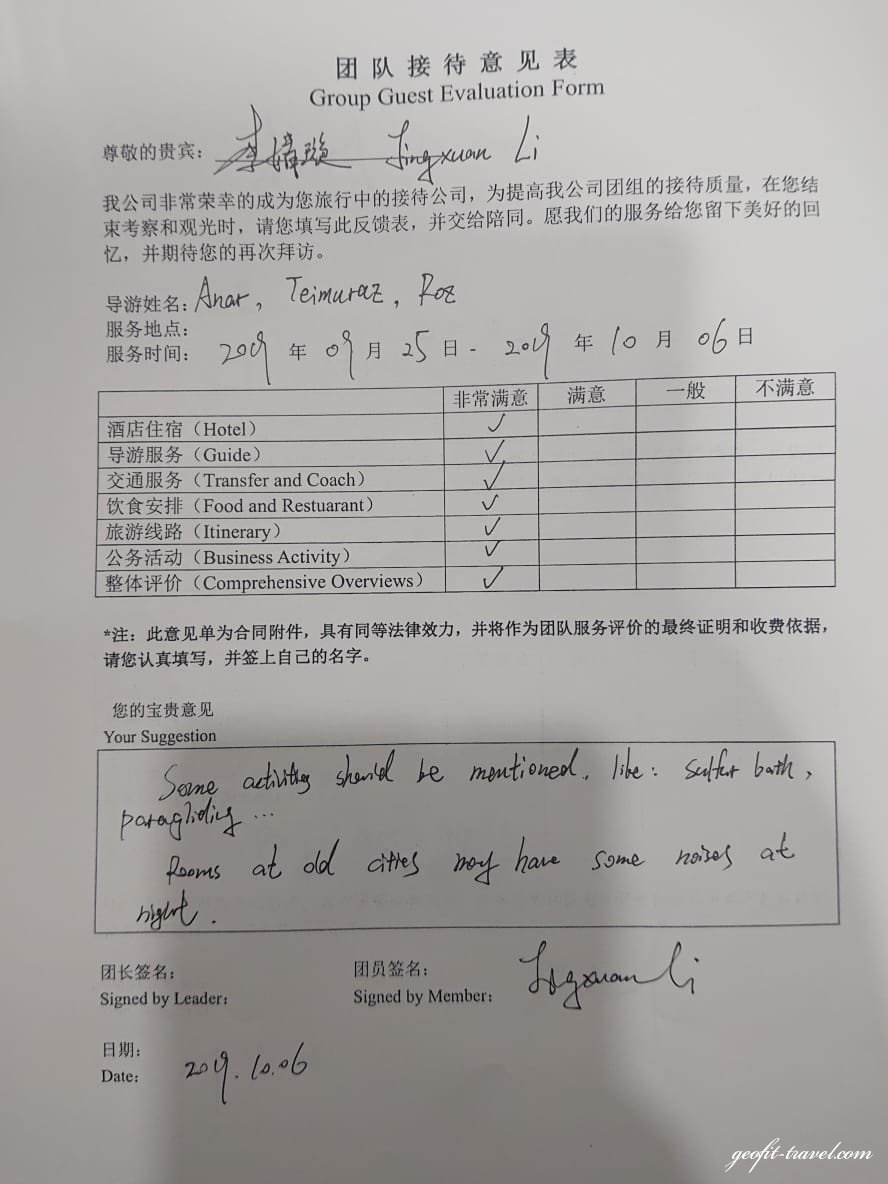 团队接待意见表
Group Guest Evaluation Form
尊敬的贵宾: 李婧璇 Jingxuan Li
我公司非常荣幸的成为您旅行中的接待公司，为提高我公司团组的接待质量，在您结
束考察和观光时，请您填写此反馈表，并交给陪同。愿我们的服务给您留下美好的回
忆，并期待您的再次拜访。
导游姓名: Anar, Teimuraz, Roz
服务地点:
服务时间: 2019 年 09 月 25 日 - 2019 年 10 月 06 日
非常满意 满意 一般 不满意
酒店住宿（Hotel） ✓
导游服务（Guide） ✓
交通服务（Transfer and Coach） ✓
饮食安排（Food and Restuarant） ✓
旅游线路（Itinerary） ✓
公务活动（Business Activity） ✓
整体评价（Comprehensive Overviews） ✓
*注：此意见单为合同附件，具有同等法律效力，并将作为团队服务评价的最终证明和收费依据，
请您认真填写，并签上自己的名字。
您的宝贵意见
Your Suggestion
Some activities should be mentioned, like: sulfur bath,
paragliding ...
Rooms at old cities may have some noises at
night.
团长签名: 团员签名:
Signed by Leader: Signed by Member: Jingxuan Li
日期:
Date: 2019.10.06
geofit-travel.com